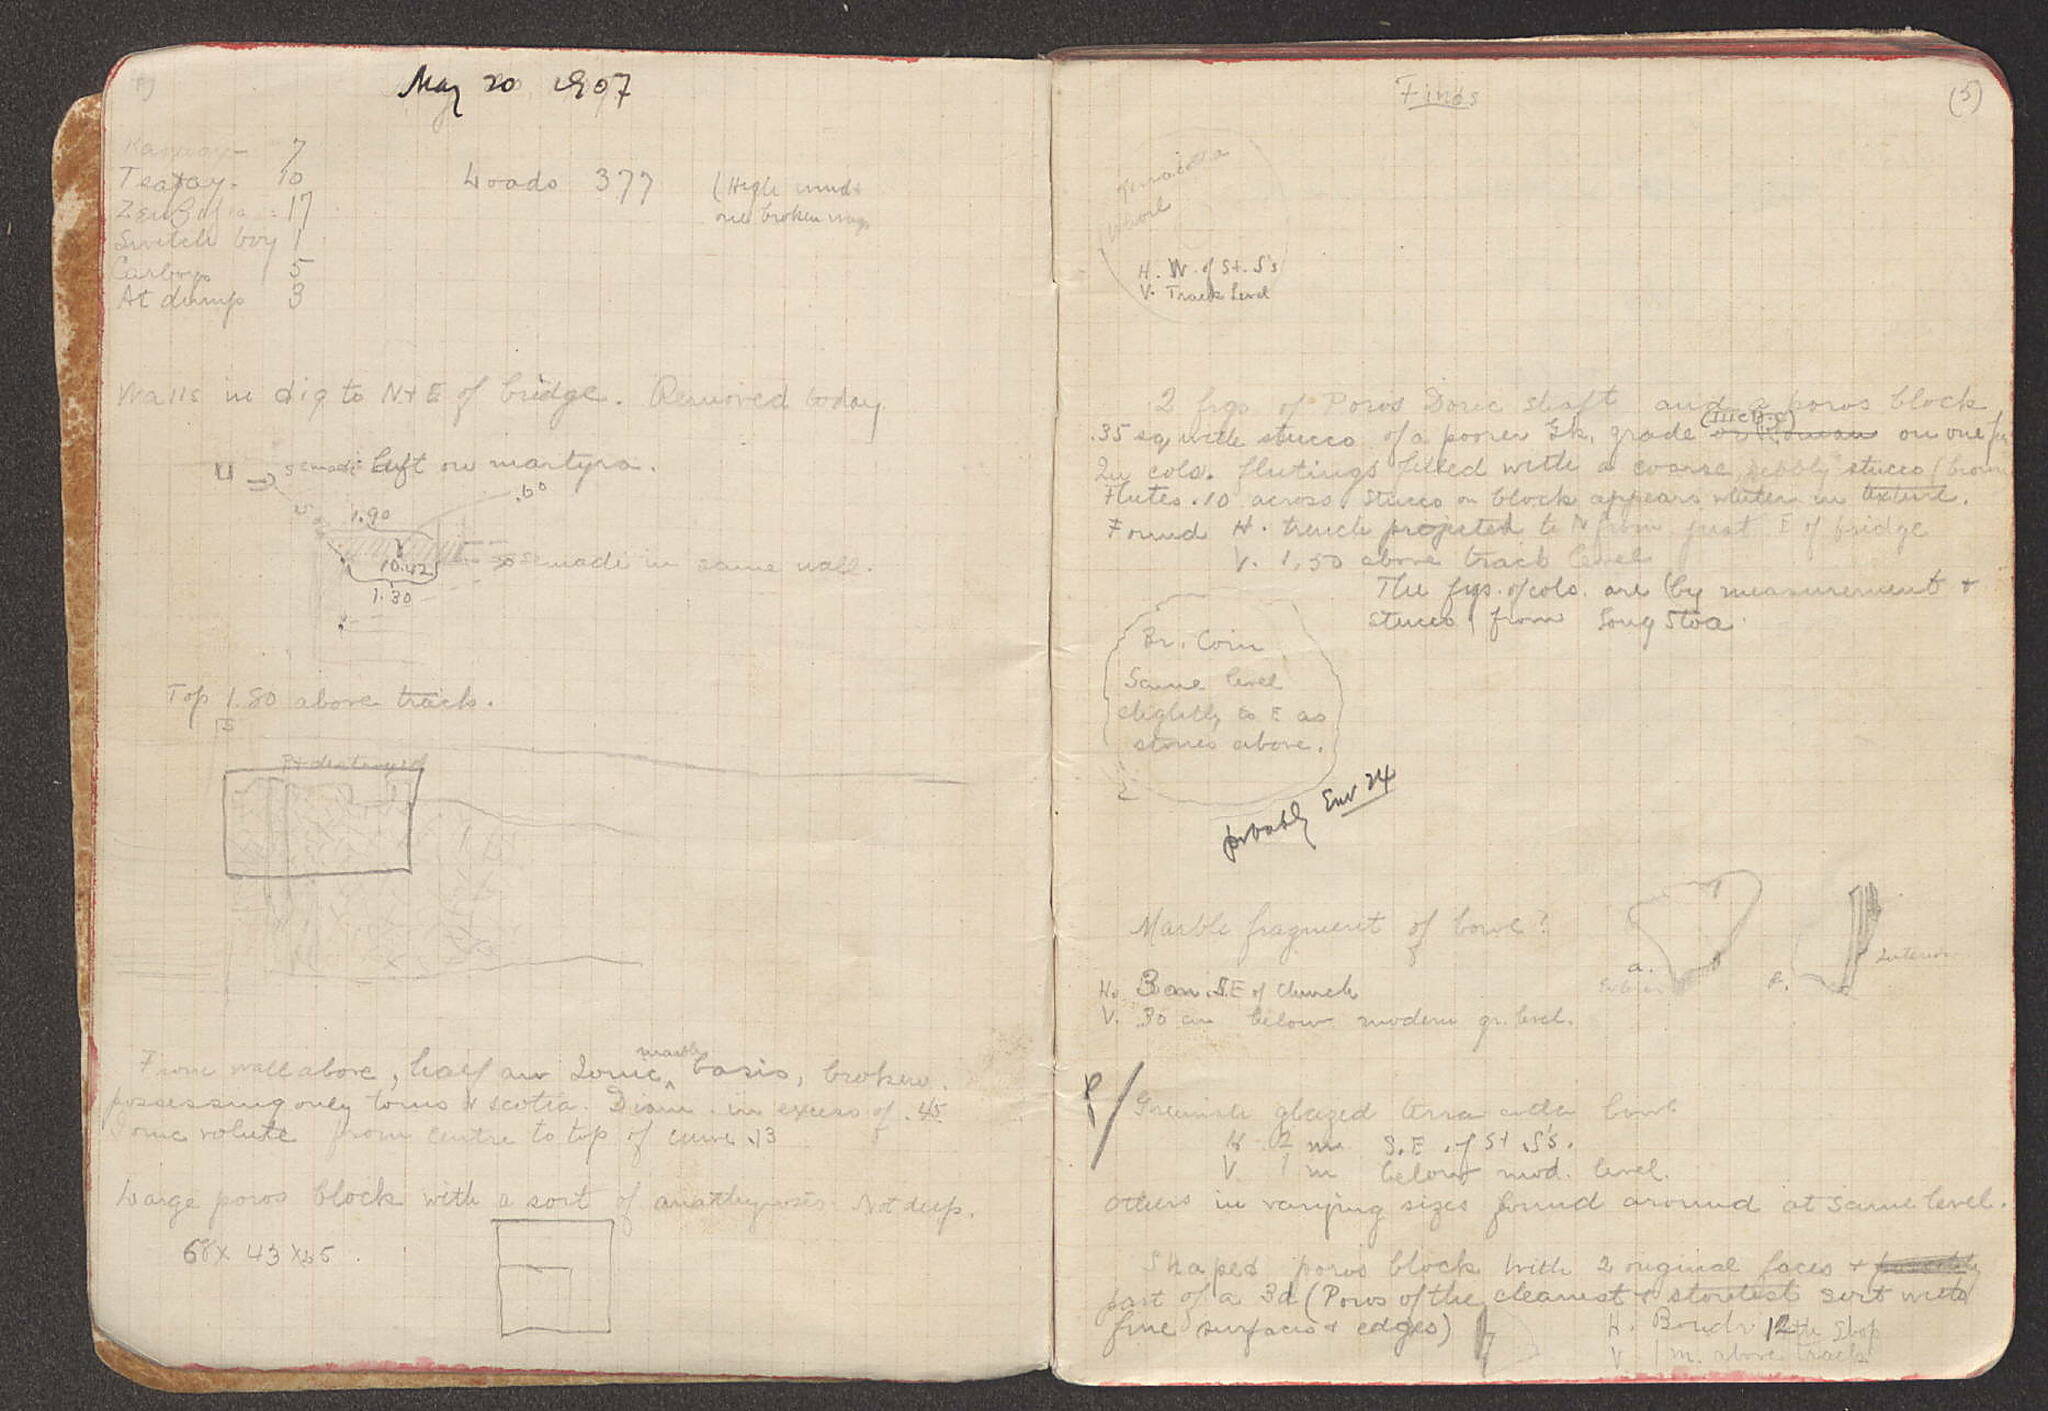 May 20 1907
7
Teapay. 10
Loads 377
(High wind +
17
one broken
Switch boy 1
Carboys 5
At dump 3
Walls in dig to N + E of bridge. Removed today.
left on martyra.
.60
1.90
semadi in same wall.
1.30
Top 1.80 above track.
From wall above, half an Ionic marble basis, broken.
possessing only torus & scotia. Diam. in excess of .45
Ionic volute from centre to top of curve .13
Large poros block with a sort of anathyrosis. Not deep.
68 x 43 x 35.
Finds
(5)
Terracotta
Whorl
H. W. of St. S's
V. Track Level
2 frgs of Poros Doric shaft and a poros block
.35 sq with stucco of a poorer Gk. grade or Roman on one
In cols. flutings filled with a coarse pebbly stucco
Flutes .10 across. Stucco on block appears whiter in texture.
Found H. trench projected to N from just E of bridge
V. 1,50 above track level
The frgs. of cols. are (by measurement +
stucco) from Long Stoa
Br. Coin
Same level
slightly to E as
stones above.
probably Env 24
Marble fragment of bowl?
a.
Interior
H. 3 m. S.E of Church
V. .30 cm below modern gr. level.
Greenish glazed terra cotta bowl
H 2 m S.E. of St S's.
V. 1 m below mod. level.
Others in varying sizes found around at same level.
Shaped poros block with 2 original faces +
part of a 3d (Poros of the cleanest & stoutest sort with
fine surfaces & edges)
H. 12th shop
V. 1 m. above track